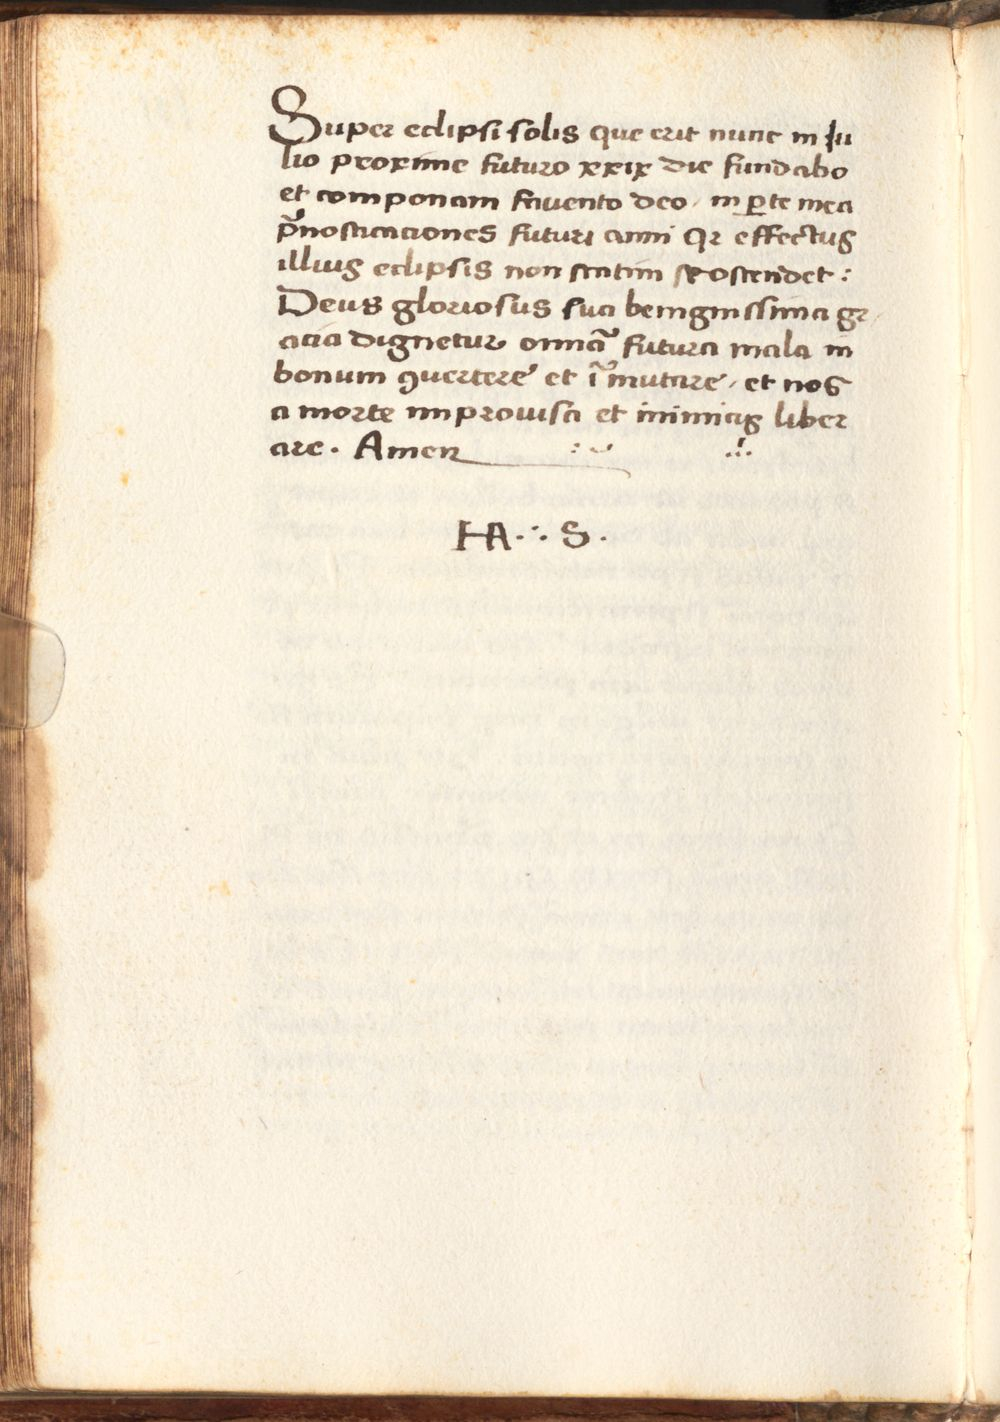 Super eclipsi solis que erit nunc in Iu
lio proxime futuro xxix die fundabo
et componam favento deo / in ꝑte mea
p̃nosticaciones futuri anni qr effectus
illius eclipsis non statim se ostendet :
Deus gloriosus sua benignissima gr
acia dignetur omnia᷑ futura mala in
bonum ꝯvertere et i᷑mutare / et nos
a morte improvisa et inimicis liber
are . Amen
HA · ∴ S ·